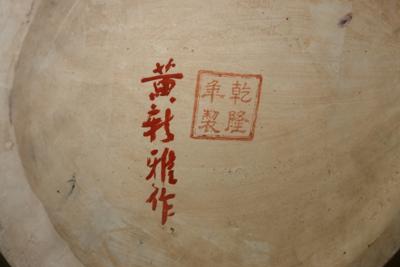 乾隆
年製
黄新雅作